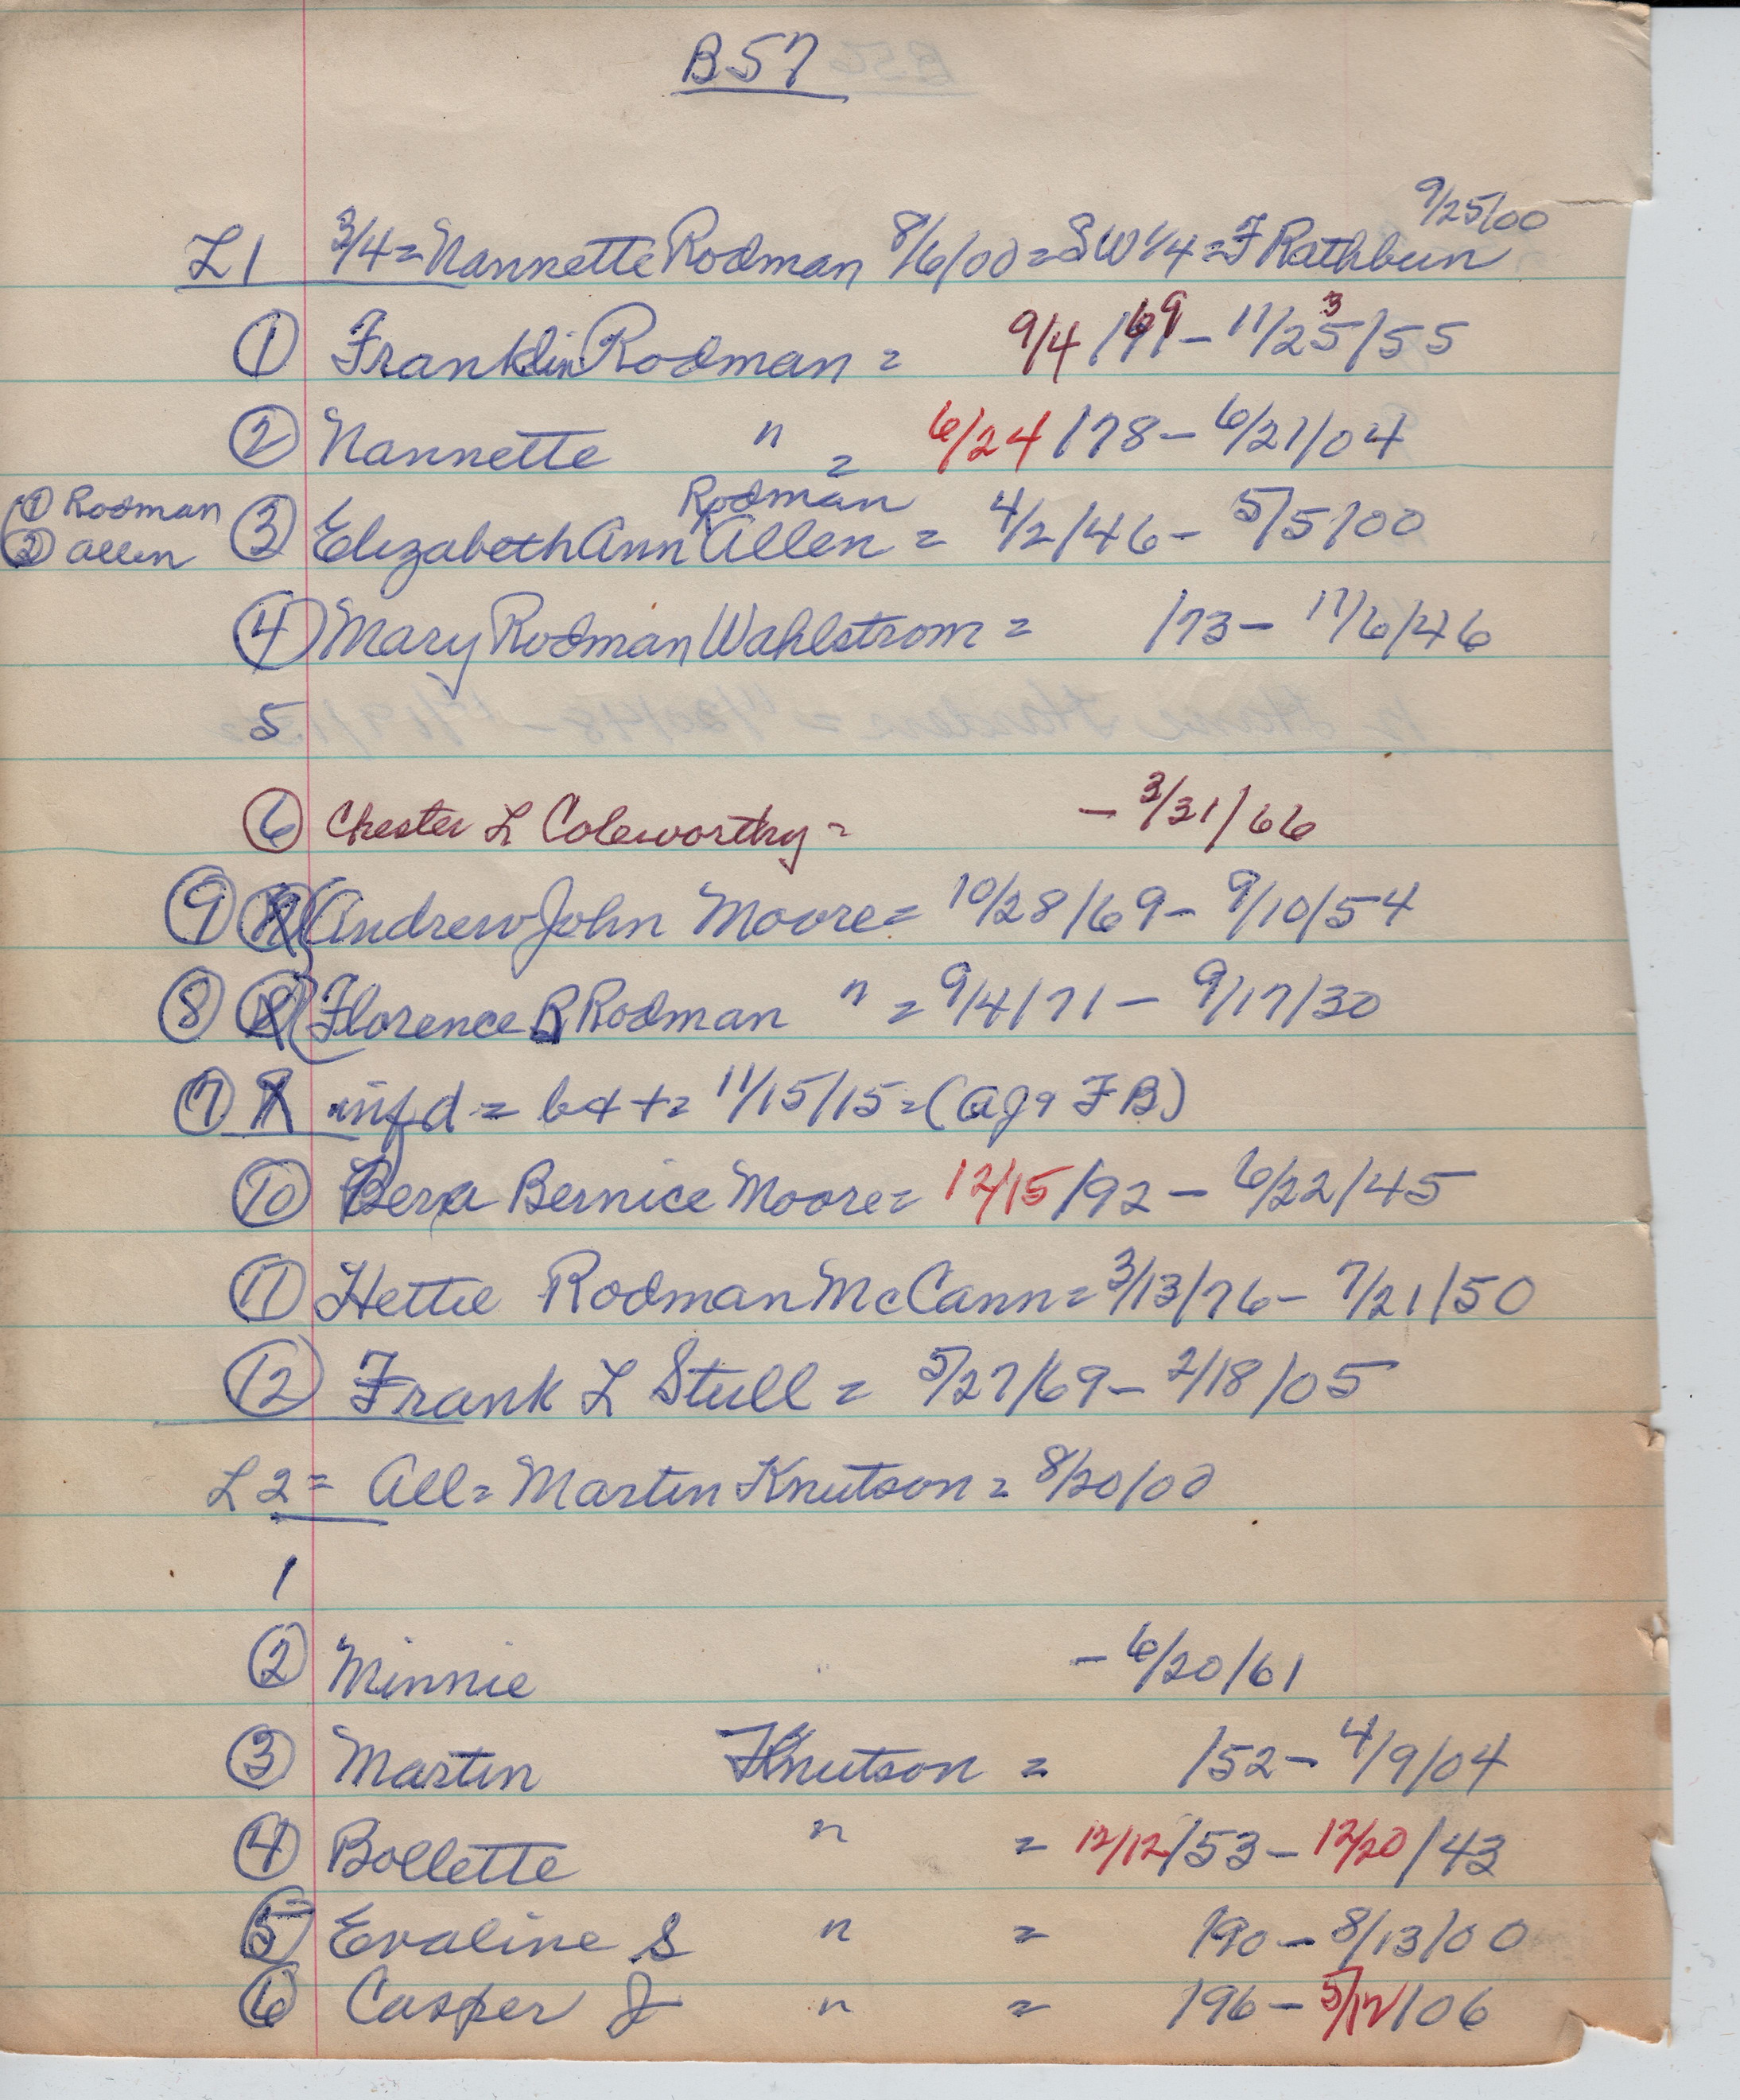 B57
L1 3/4 = Nannette Rodman 8/6/00 = SW 1/4 = F Rathbun 9/25/00
① Franklin Rodman = 9/4/69 - 11/23/55
② Nannette " = 6/24/78 - 6/21/04
① Rodman
② Allen
③ Elizabeth Ann Rodman Allen = 4/2/46 - 5/5/00
④ Mary Rodman Wahlstrom = /73 - 11/6/46
5
⑥ Chester L Coleworthy = - 3/31/66
⑨ Andrew John Moore = 10/28/69 - 9/10/54
⑧ Florence B Rodman " = 9/4/71 - 9/17/30
⑦ inf d = b & + = 11/15/15 = (AJ & FB)
⑩ Bernice Moore = 12/15/92 - 6/22/45
⑪ Hettie Rodman McCann = 3/13/76 - 7/21/50
⑫ Frank L Stull = 5/27/69 - 2/18/05
L2 = All = Martin Knutson = 8/20/00
1
② Minnie - 6/20/61
③ Martin Knutson = /52 - 4/9/04
④ Bollette " = 12/12/53 - 12/20/43
⑤ Evaline S " = /90 - 8/13/00
⑥ Casper J " = /96 - 5/12/06